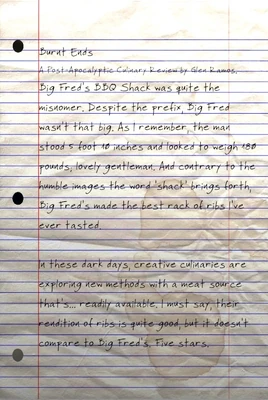 Burnt Ends
A Post-Apocalyptic Culinary Review by Glen Ramos.
Big Fred's BBQ Shack was quite the
misnomer. Despite the prefix, Big Fred
wasn't that big. As I remember, the man
stood 5 foot 10 inches and looked to weigh 180
pounds, lovely gentleman. And contrary to the
humble images the word 'shack' brings forth,
Big Fred's made the best rack of ribs I've
ever tasted.
In these dark days, creative culinaries are
exploring new methods with a meat source
that's... readily available. I must say, their
rendition of ribs is quite good, but it doesn't
compare to Big Fred's. Five stars.